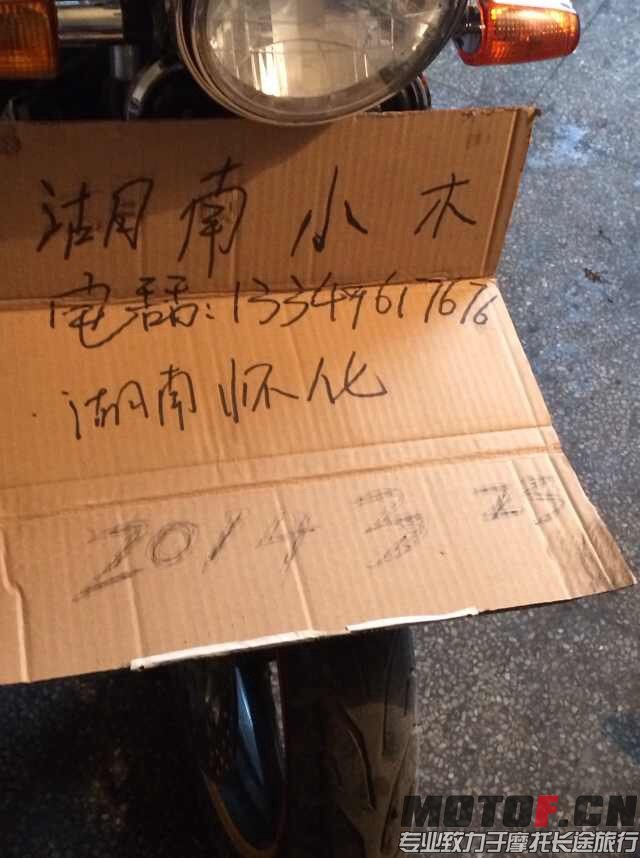 湖南小木
电话:13349617676
湖南怀化
2014 3 25
MOTOF.CN
专业致力于摩托长途旅行